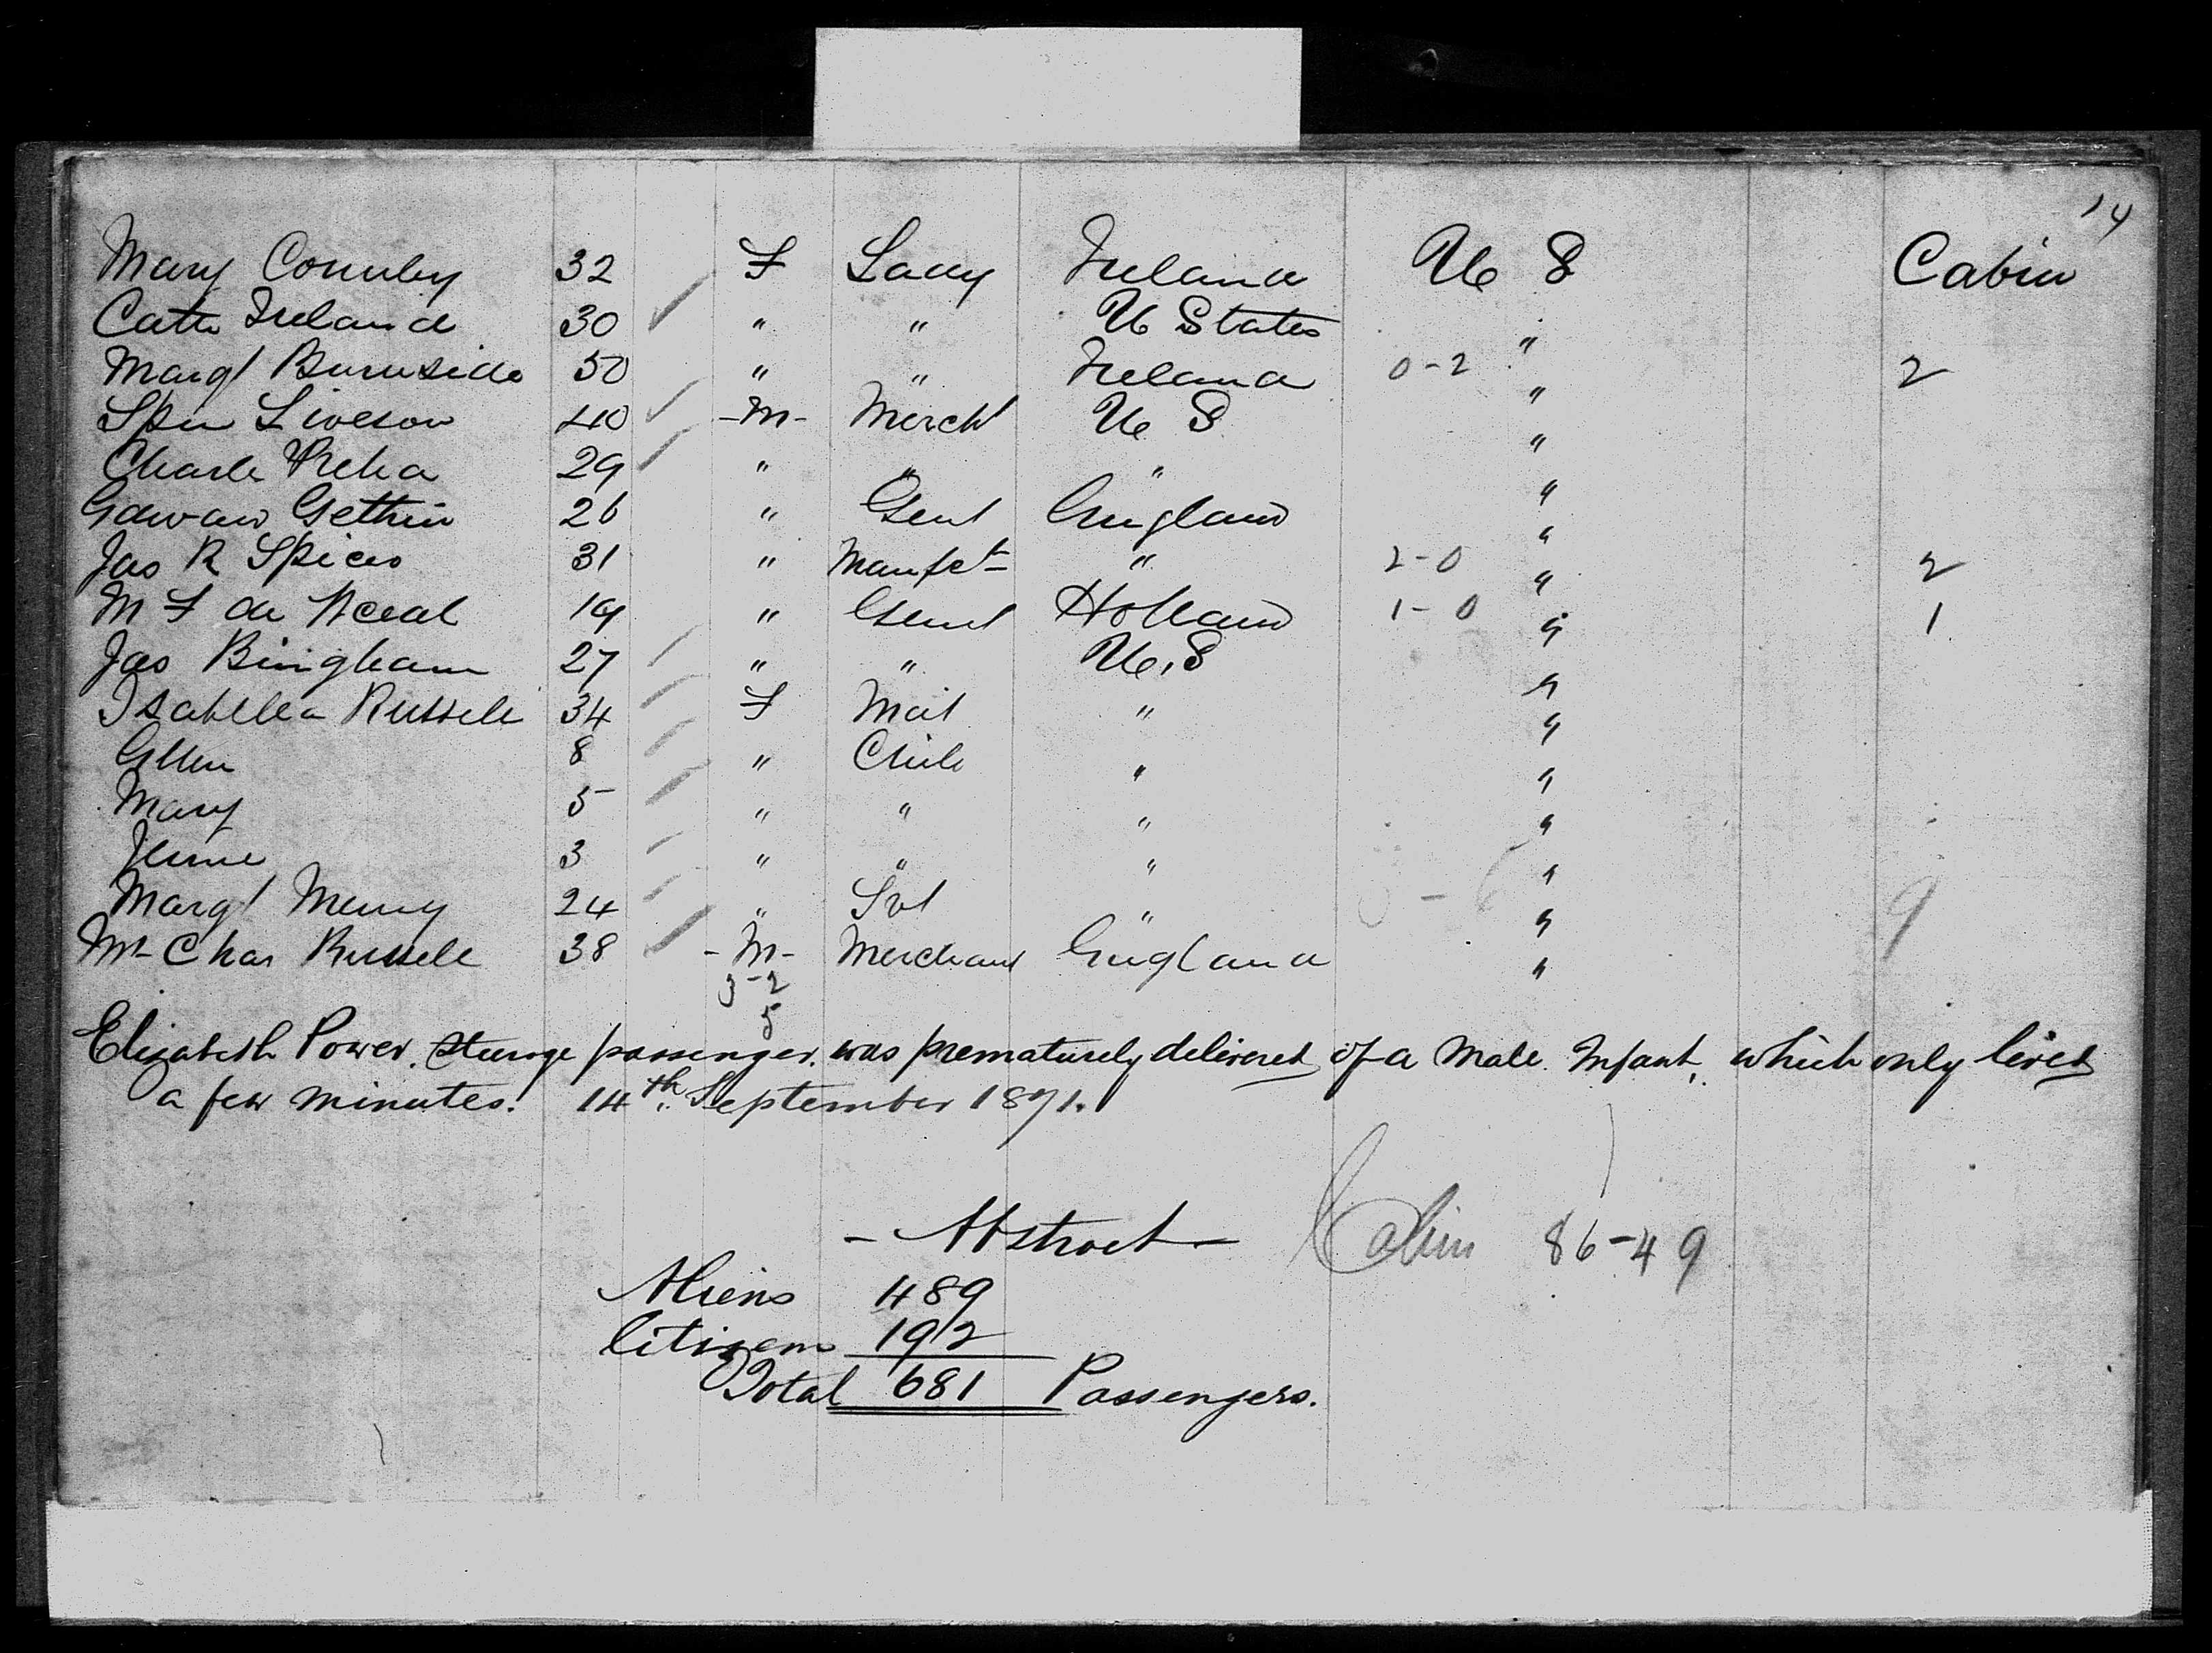 14
Mary Connley 32 F Lady Ireland U S Cabin
Cath Ireland 30 " " U States "
Margt Burnside 50 " " Ireland 0-2 " 2
Liveson 40 -M- Mercht U S "
Charle 29 " " " "
Edward Gethin 26 " Gent England "
Jas R Spicer 31 " Manfct " 2-0 " 2
M F de 19 " Gent Holland 1-0 " 1
Jas Bingham 27 " " U.S "
Isabella Russell 34 F " "
Ellen 8 " Child " "
Mary 5 " " " "
Jennie 3 " " " "
Margt 24 " Svt " " 9
Mr Chas Russell 38 -M- Merchant England "
3-2
5
Elizabeth Power. Steerage passenger. was prematurely delivered of a Male Infant, which only lived
a few minutes. 14th September 1871.
- Abstract -
Cabin 86-49
Aliens 489
Citizens 192
Total 681 Passengers.